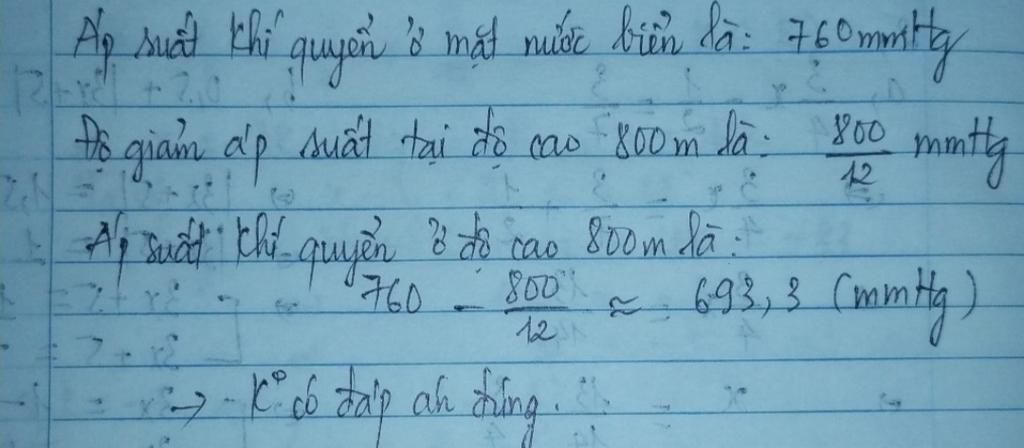 Áp suất khí quyển ở mặt nước biển là: 760mmHg
Độ giảm áp suất tại độ cao 800m là: 800/12 mmHg
Áp suất khí quyển ở độ cao 800m là:
760 - 800/12 ≈ 693,3 (mmHg)
→ K° có đáp án đúng.